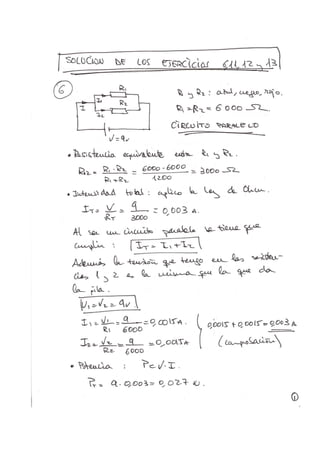 SOLUCION DE LOS EJERCICIOS 6,11,12 y 13
6
R₁
R₂
I
I₁
I₂
V=9v
R₁ y R₂ : azul, negro, rojo.
R₁=R₂= 6000 Ω
CIRCUITO PARALELO
• Resistencia equivalente entre R₁ y R₂.
R₁₂ = R₁·R₂ / R₁+R₂ = 6000·6000 / 12000 = 3000 Ω
• Intensidad total: aplico la Ley de Ohm.
I_T = V / R_T = 9 / 3000 = 0,003 A.
Al ser un circuito paralelo se tiene que
cumplir : I_T = I₁ + I₂
Además la tensión que tengo en las resisten-
cias 1 y 2 es la misma que la que da
la pila.
V₁=V₂=9v
I₁ = V₁ / R₁ = 9 / 6000 = 0,0015 A.
I₂ = V₂ / R₂ = 9 / 6000 = 0,0015 A
0,0015 + 0,0015 = 0,003 A
(comprobación)
• Potencia : P=V·I.
P_T = 9·0,003 = 0,027 W.
1